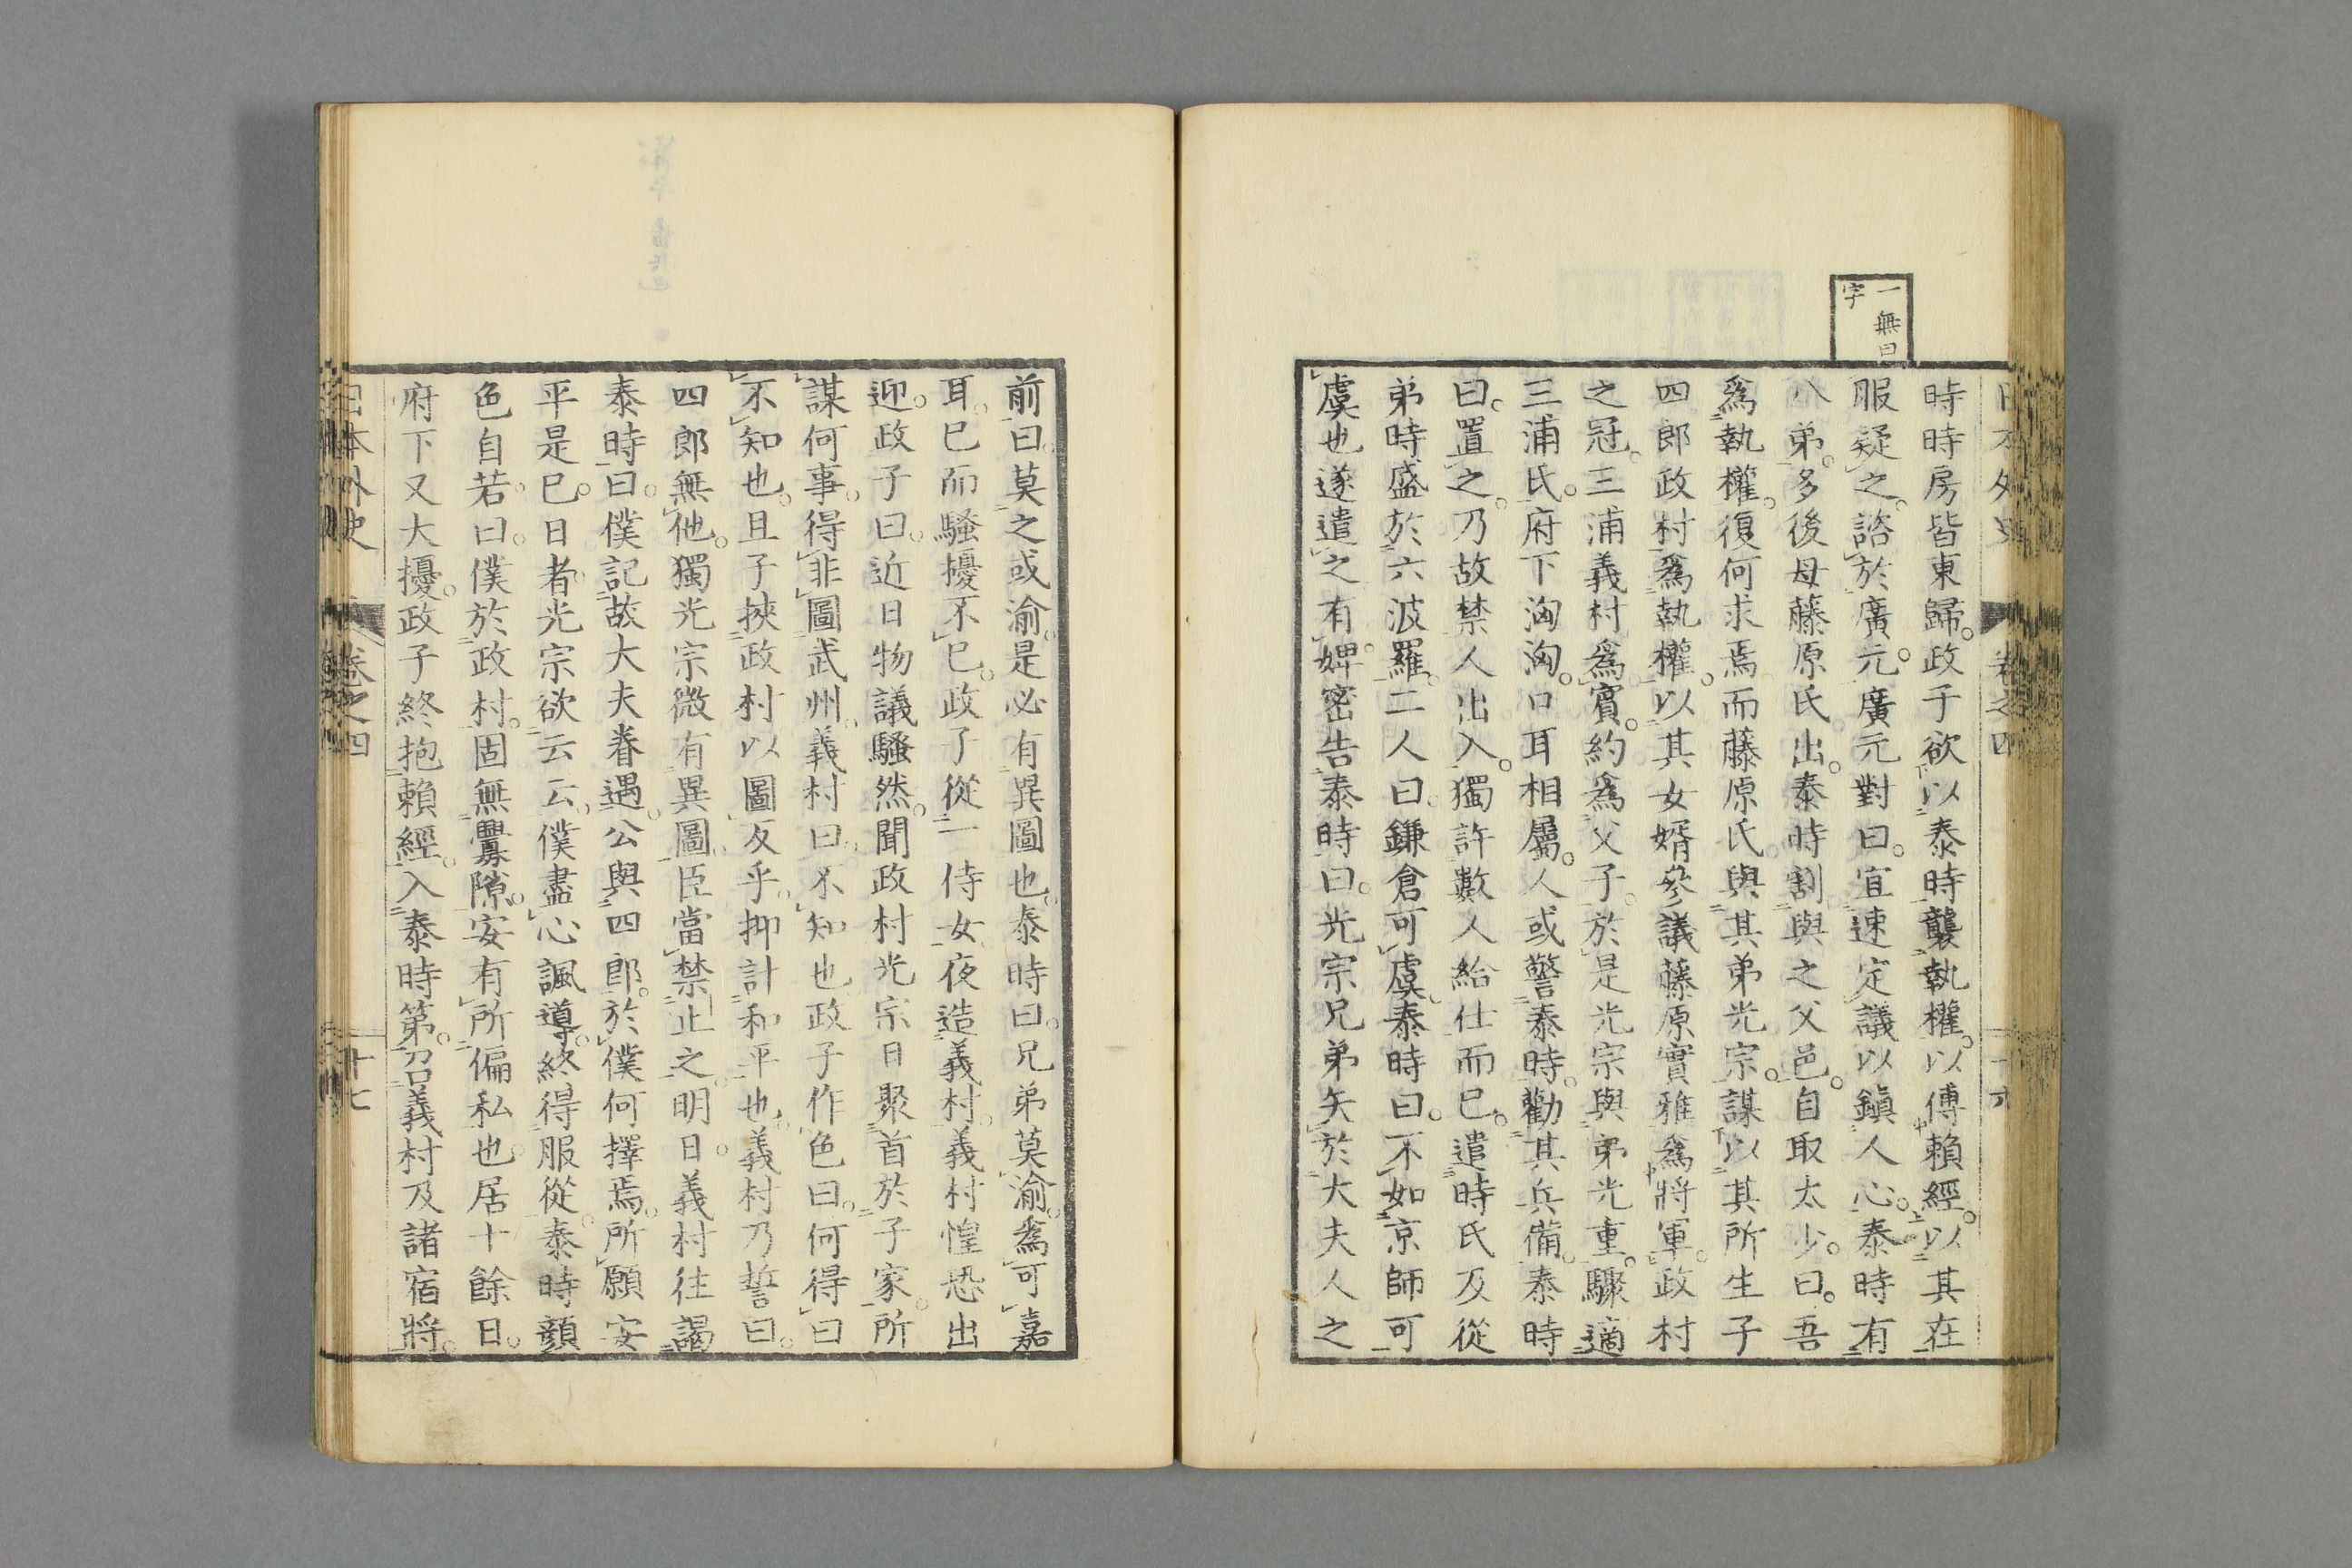 一無曰
字
日本外史 卷之四 十六
時時房皆東歸。政子欲以泰時襲執權。以傅賴經。以其在
服疑之。諮於廣元。廣元對曰。宜速定議以鎭人心。泰時有
八弟。多後母藤原氏出。泰時割與之父邑。自取太少。曰。吾
爲執權。復何求焉。而藤原氏與其弟光宗。謀以其所生子
四郎政村爲執權。以其女婿參議藤原實雅爲將軍。政村
之冠。三浦義村爲賓。約爲父子。於是光宗與弟光重。驟適
三浦氏。府下洶洶。口耳相屬。人或警泰時。勸其兵備。泰時
曰。置之。乃故禁人出入。獨許數人給仕而已。遣時氏及從
弟時盛於六波羅。二人曰。鎌倉可虞。泰時曰。不如京師可
虞也。遂遣之。有婢密告泰時曰。光宗兄弟矢於大夫人之
前曰。莫之或渝。是必有異圖也。泰時曰。兄弟莫渝。爲可嘉
耳。已而騷擾不已。政子從一侍女夜造義村。義村惶恐出
迎。政子曰。近日物議騷然。聞政村光宗日聚首於子家。所
謀何事。得非圖武州。義村曰。不知也。政子作色曰。何得曰
不知也。且子挾政村以圖反乎。抑計和平也。義村乃誓曰。
四郎無他。獨光宗微有異圖。臣當禁止之。明日。義村往謁
泰時曰。僕記故大夫眷遇。公與四郎。於僕何擇焉。所願安
平是已。日者光宗欲云云。僕盡心諷導。終得服從。泰時顏
色自若。曰。僕於政村。固無釁隙。安有所偏私也。居十餘日。
府下又大擾。政子終抱賴經。入泰時第。召義村及諸宿將。
日本外史 卷之四 十七